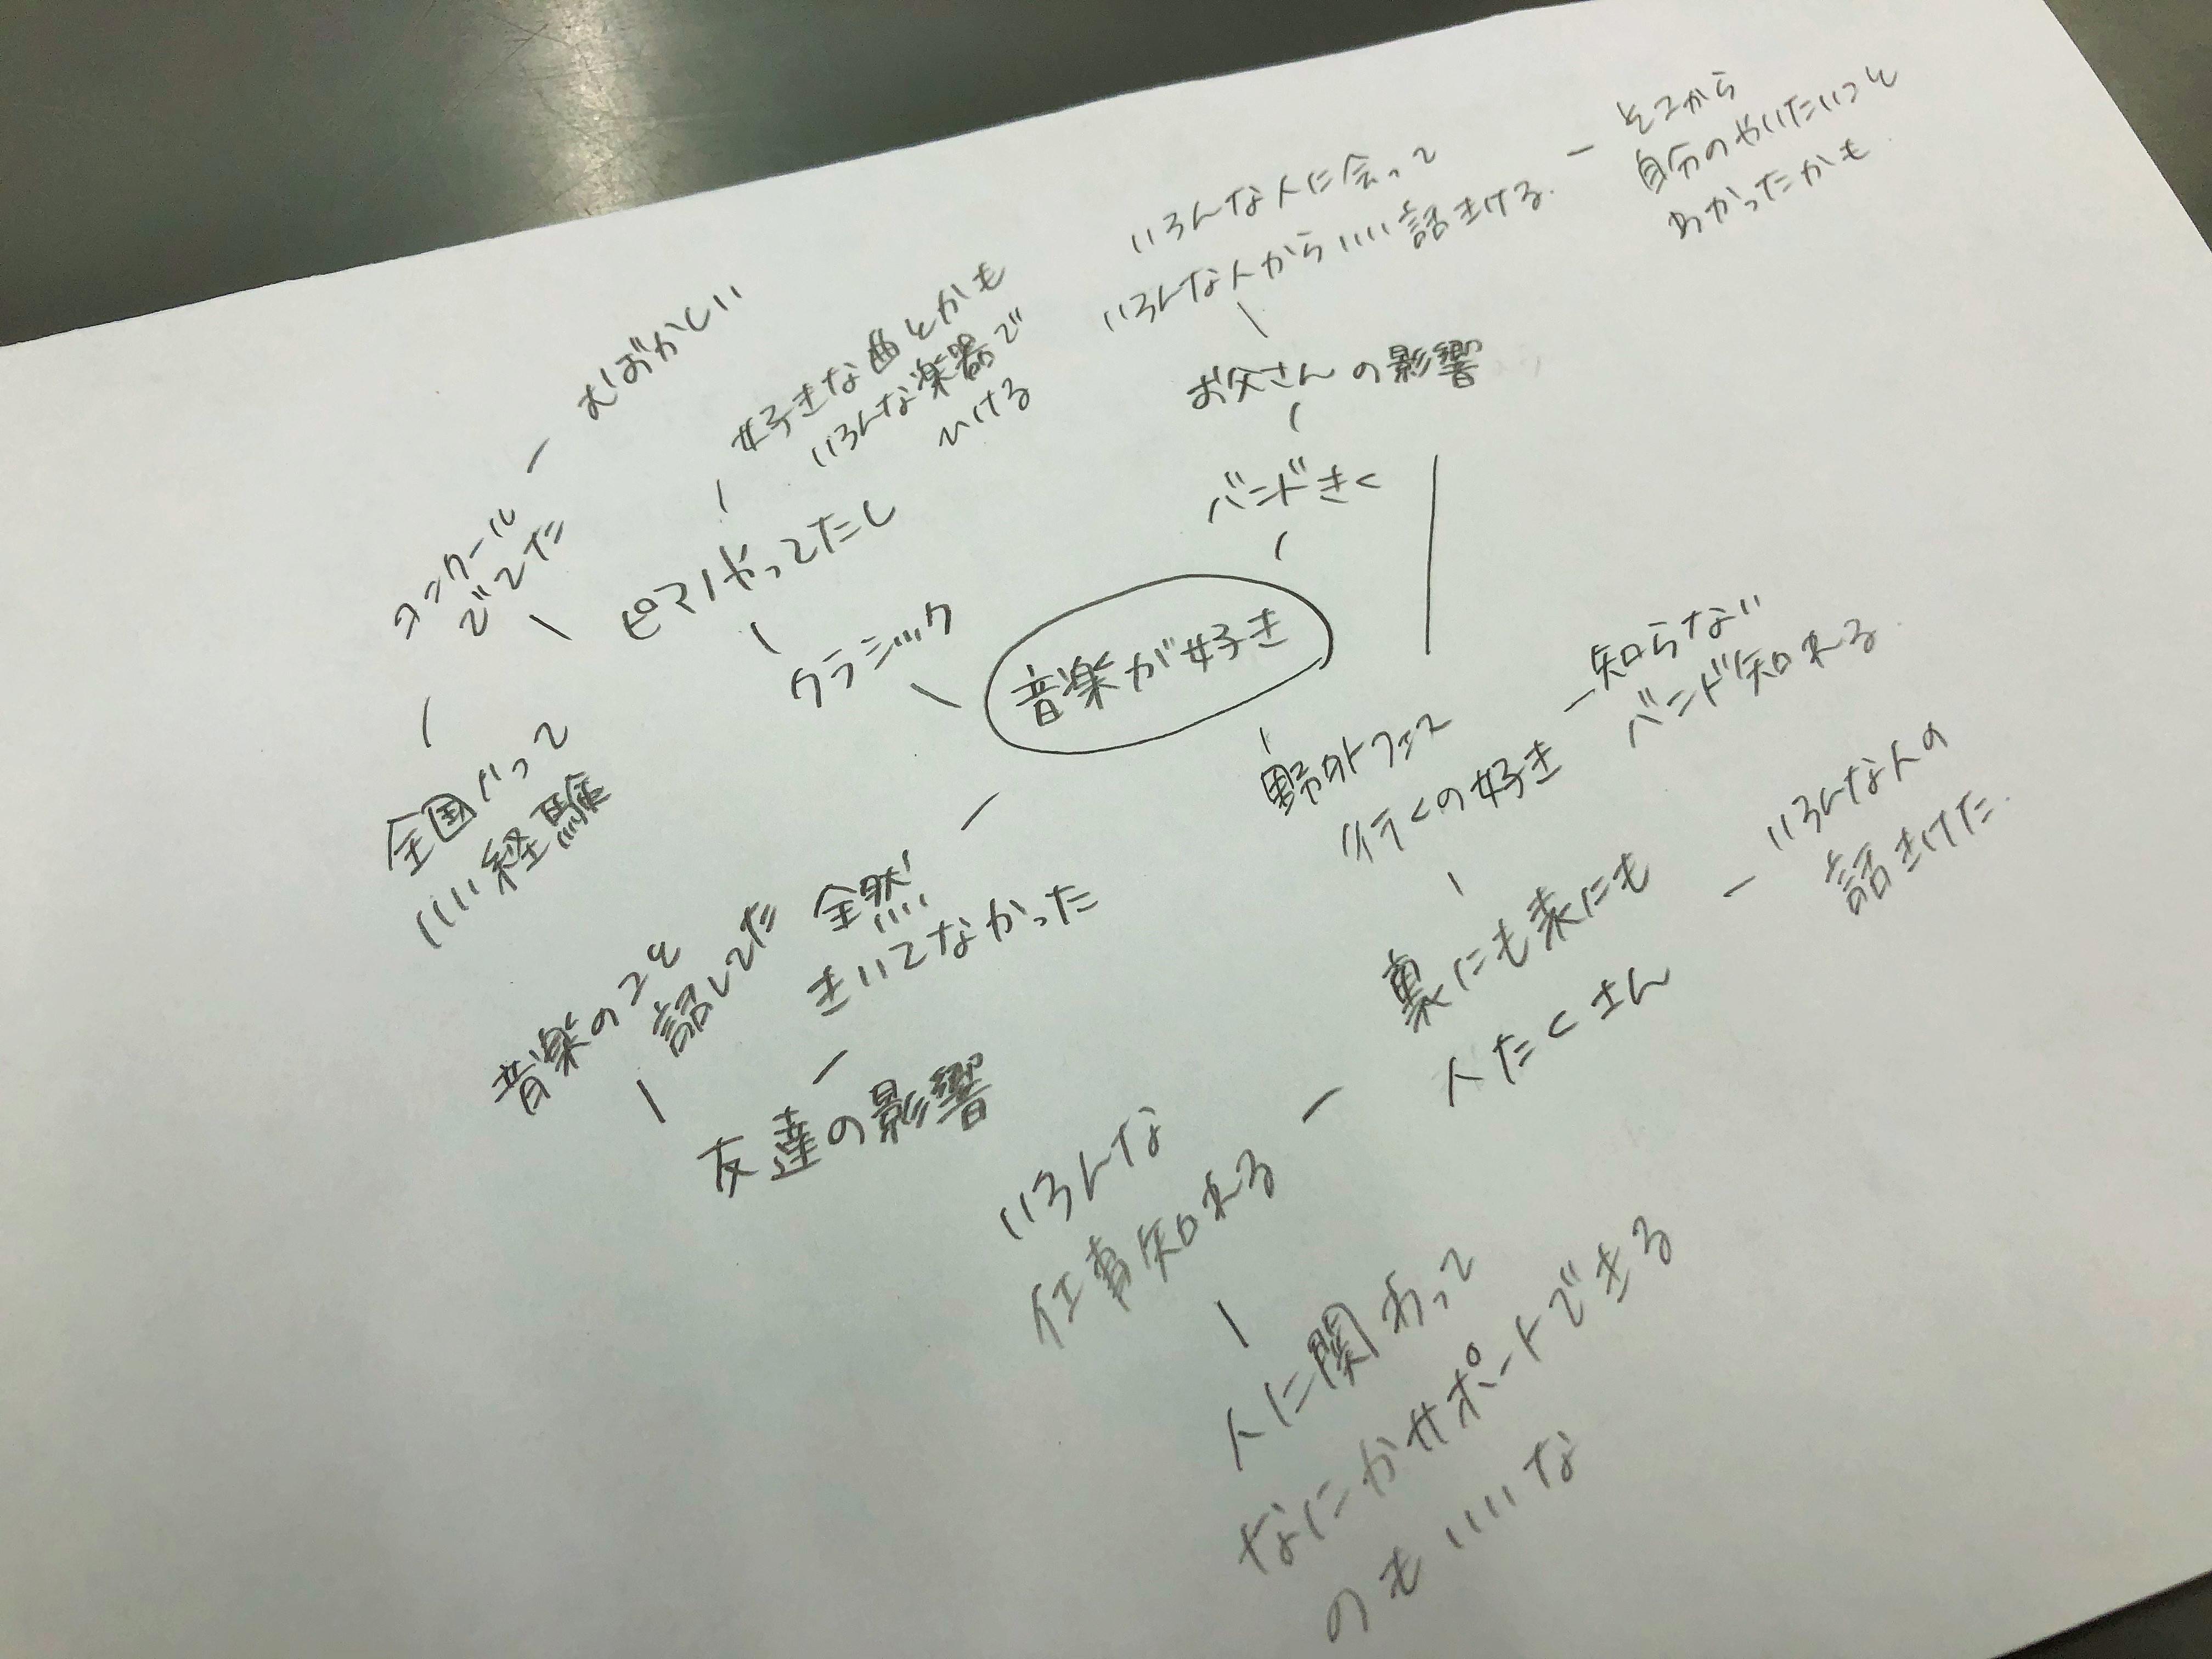 そこから
自分のやりたいこと
わかったかも
いろんな人に会って
いろんな人からいい話きける.
お父さんの影響
バンドきく
むずかしい
好きな曲とかも
いろんな楽器で
ひける
コンクール
でてた
ピアノやってたし
クラシック
音楽が好き
全国いって
いい経験
野外フェス
行くの好き
知らない
バンド知れる.
裏にも表にも
人たくさん
いろんな人の
話きけた.
全然
きいてなかった
音楽のこと
話してた
友達の影響
いろんな
仕事知れる
人に関わって
なにかサポートできる
のもいいな